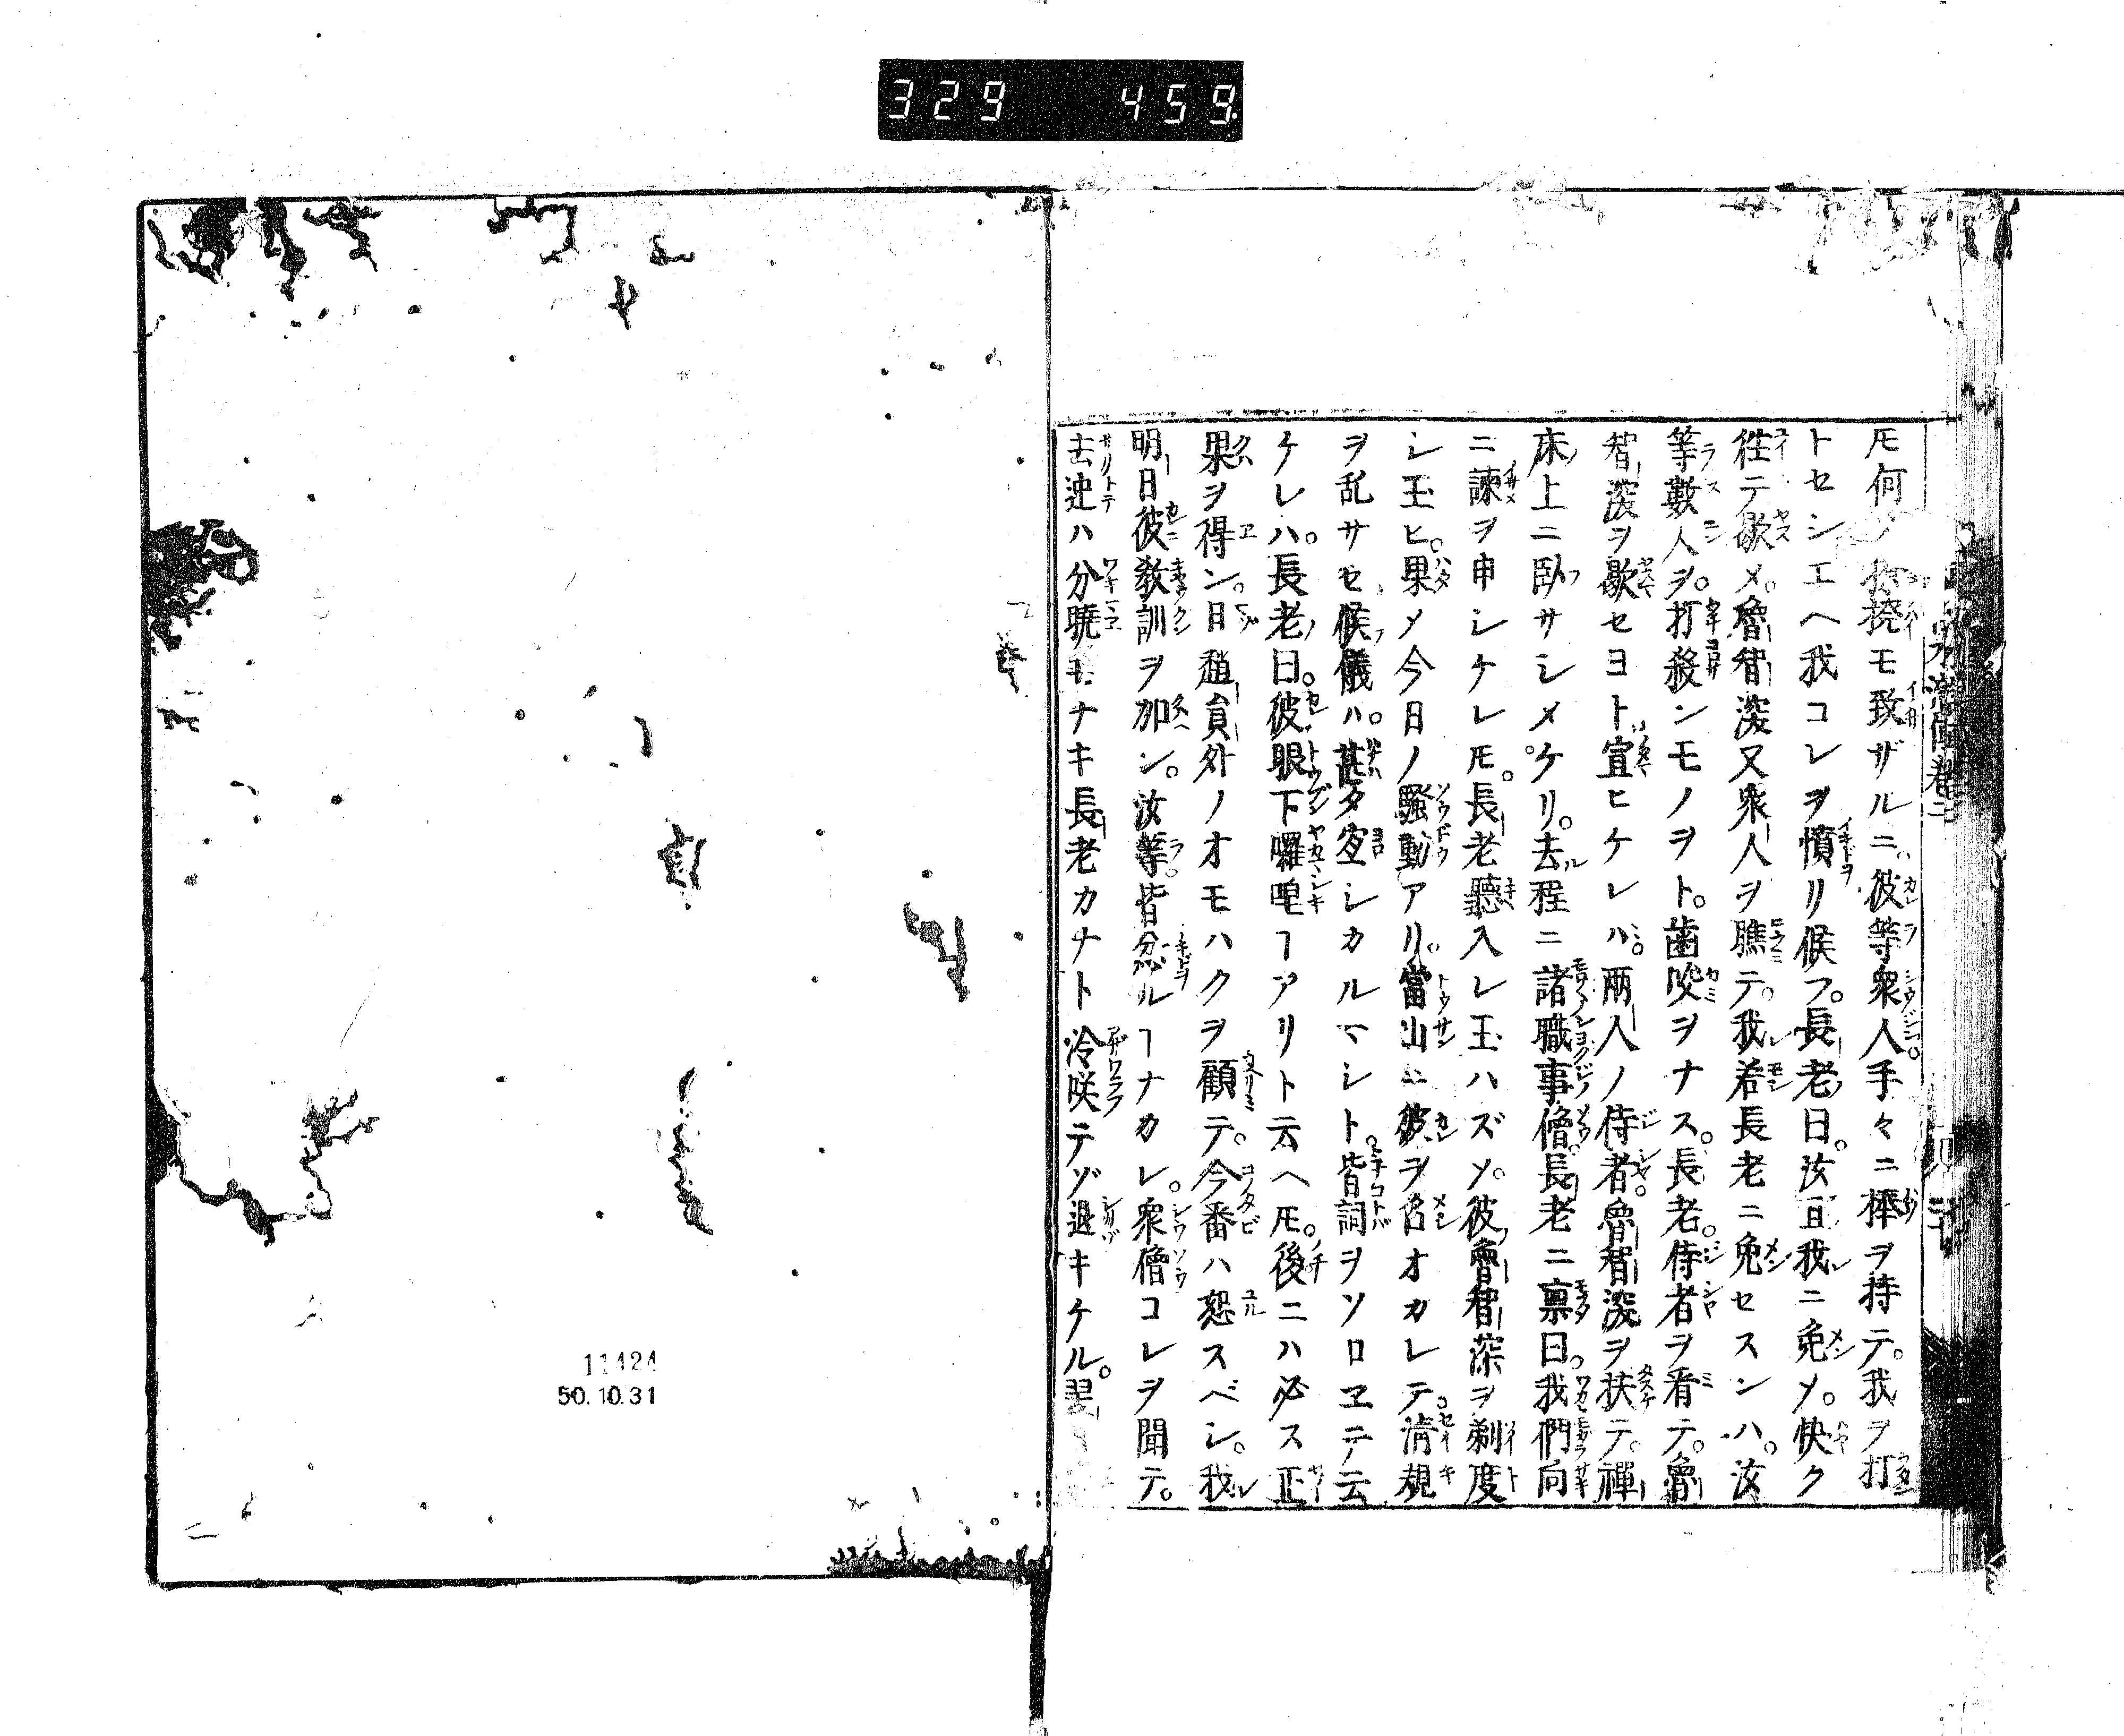 329 459
𪜈何ノ撓モ致ザルニ彼等衆人手々ニ棒ヲ持テ。我ヲ打
トセシエヘ我コレヲ憤リ候フ。長老曰。汝且我ニ免メ。快ク
徃テ歇メ。魯智深又衆人ヲ瞧テ。我若長老ニ免セスンハ。汝
等數人ヲ。打殺ンモノヲト。歯咬ヲナス。長老。侍者ヲ看テ。魯
智深ヲ歇セヨト宣ヒケレハ。兩人ノ侍者。魯智深ヲ扶テ。禪
床上ニ臥サシメケリ。去程ニ諸職事僧。長老ニ禀曰。我們向
ニ諫ヲ申シケレ𪜈。長老聽入レ玉ハズソ。彼魯智深ヲ剃度
シ玉ヒ。果メ今日ノ騒動アリ。當山ニ彼ヲ召オカレテ。清規
ヲ乱サセ候儀ハ。甚タ宜シカルマシト。皆詞ヲソロヱテ云
ケレハ。長老曰。彼眼下囉唣ヿアリト云ヘ𪜈。後ニハ必ス正
果ヲ得ン。日趙員外ノオモハクヲ顧テ。今番ハ恕スベシ。我
明日彼教訓ヲ加ン。汝等皆忿ルヿナカレ。衆僧コレヲ聞テ。
去迚ハ分曉モナキ長老カナト冷咲テゾ退キケル。翌
11424
50.10.31